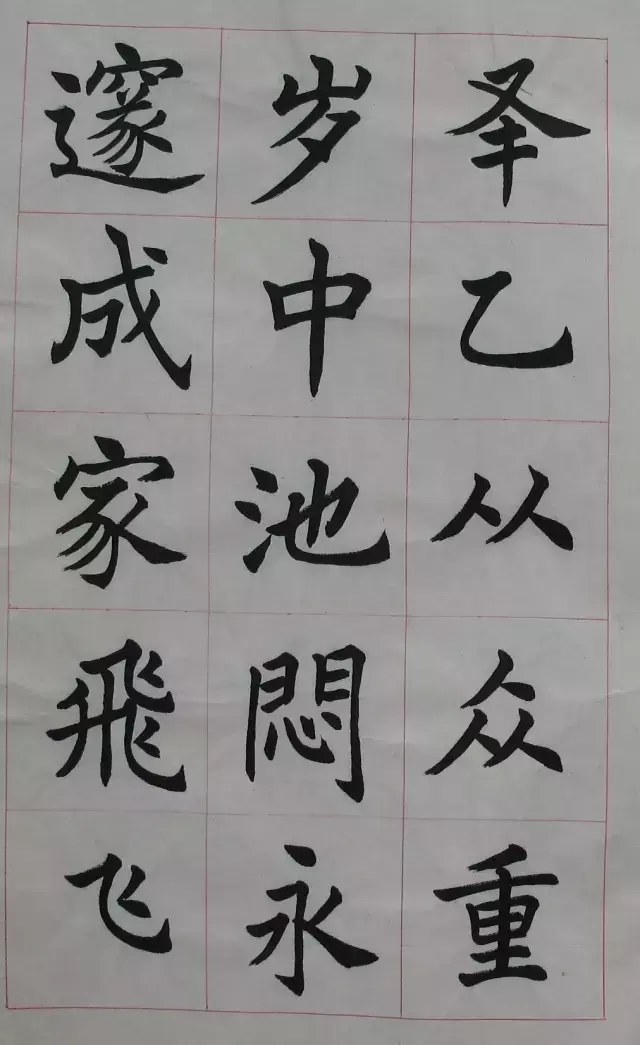 𠬤乙从众重
岁中池悶永
邃成家飛飞